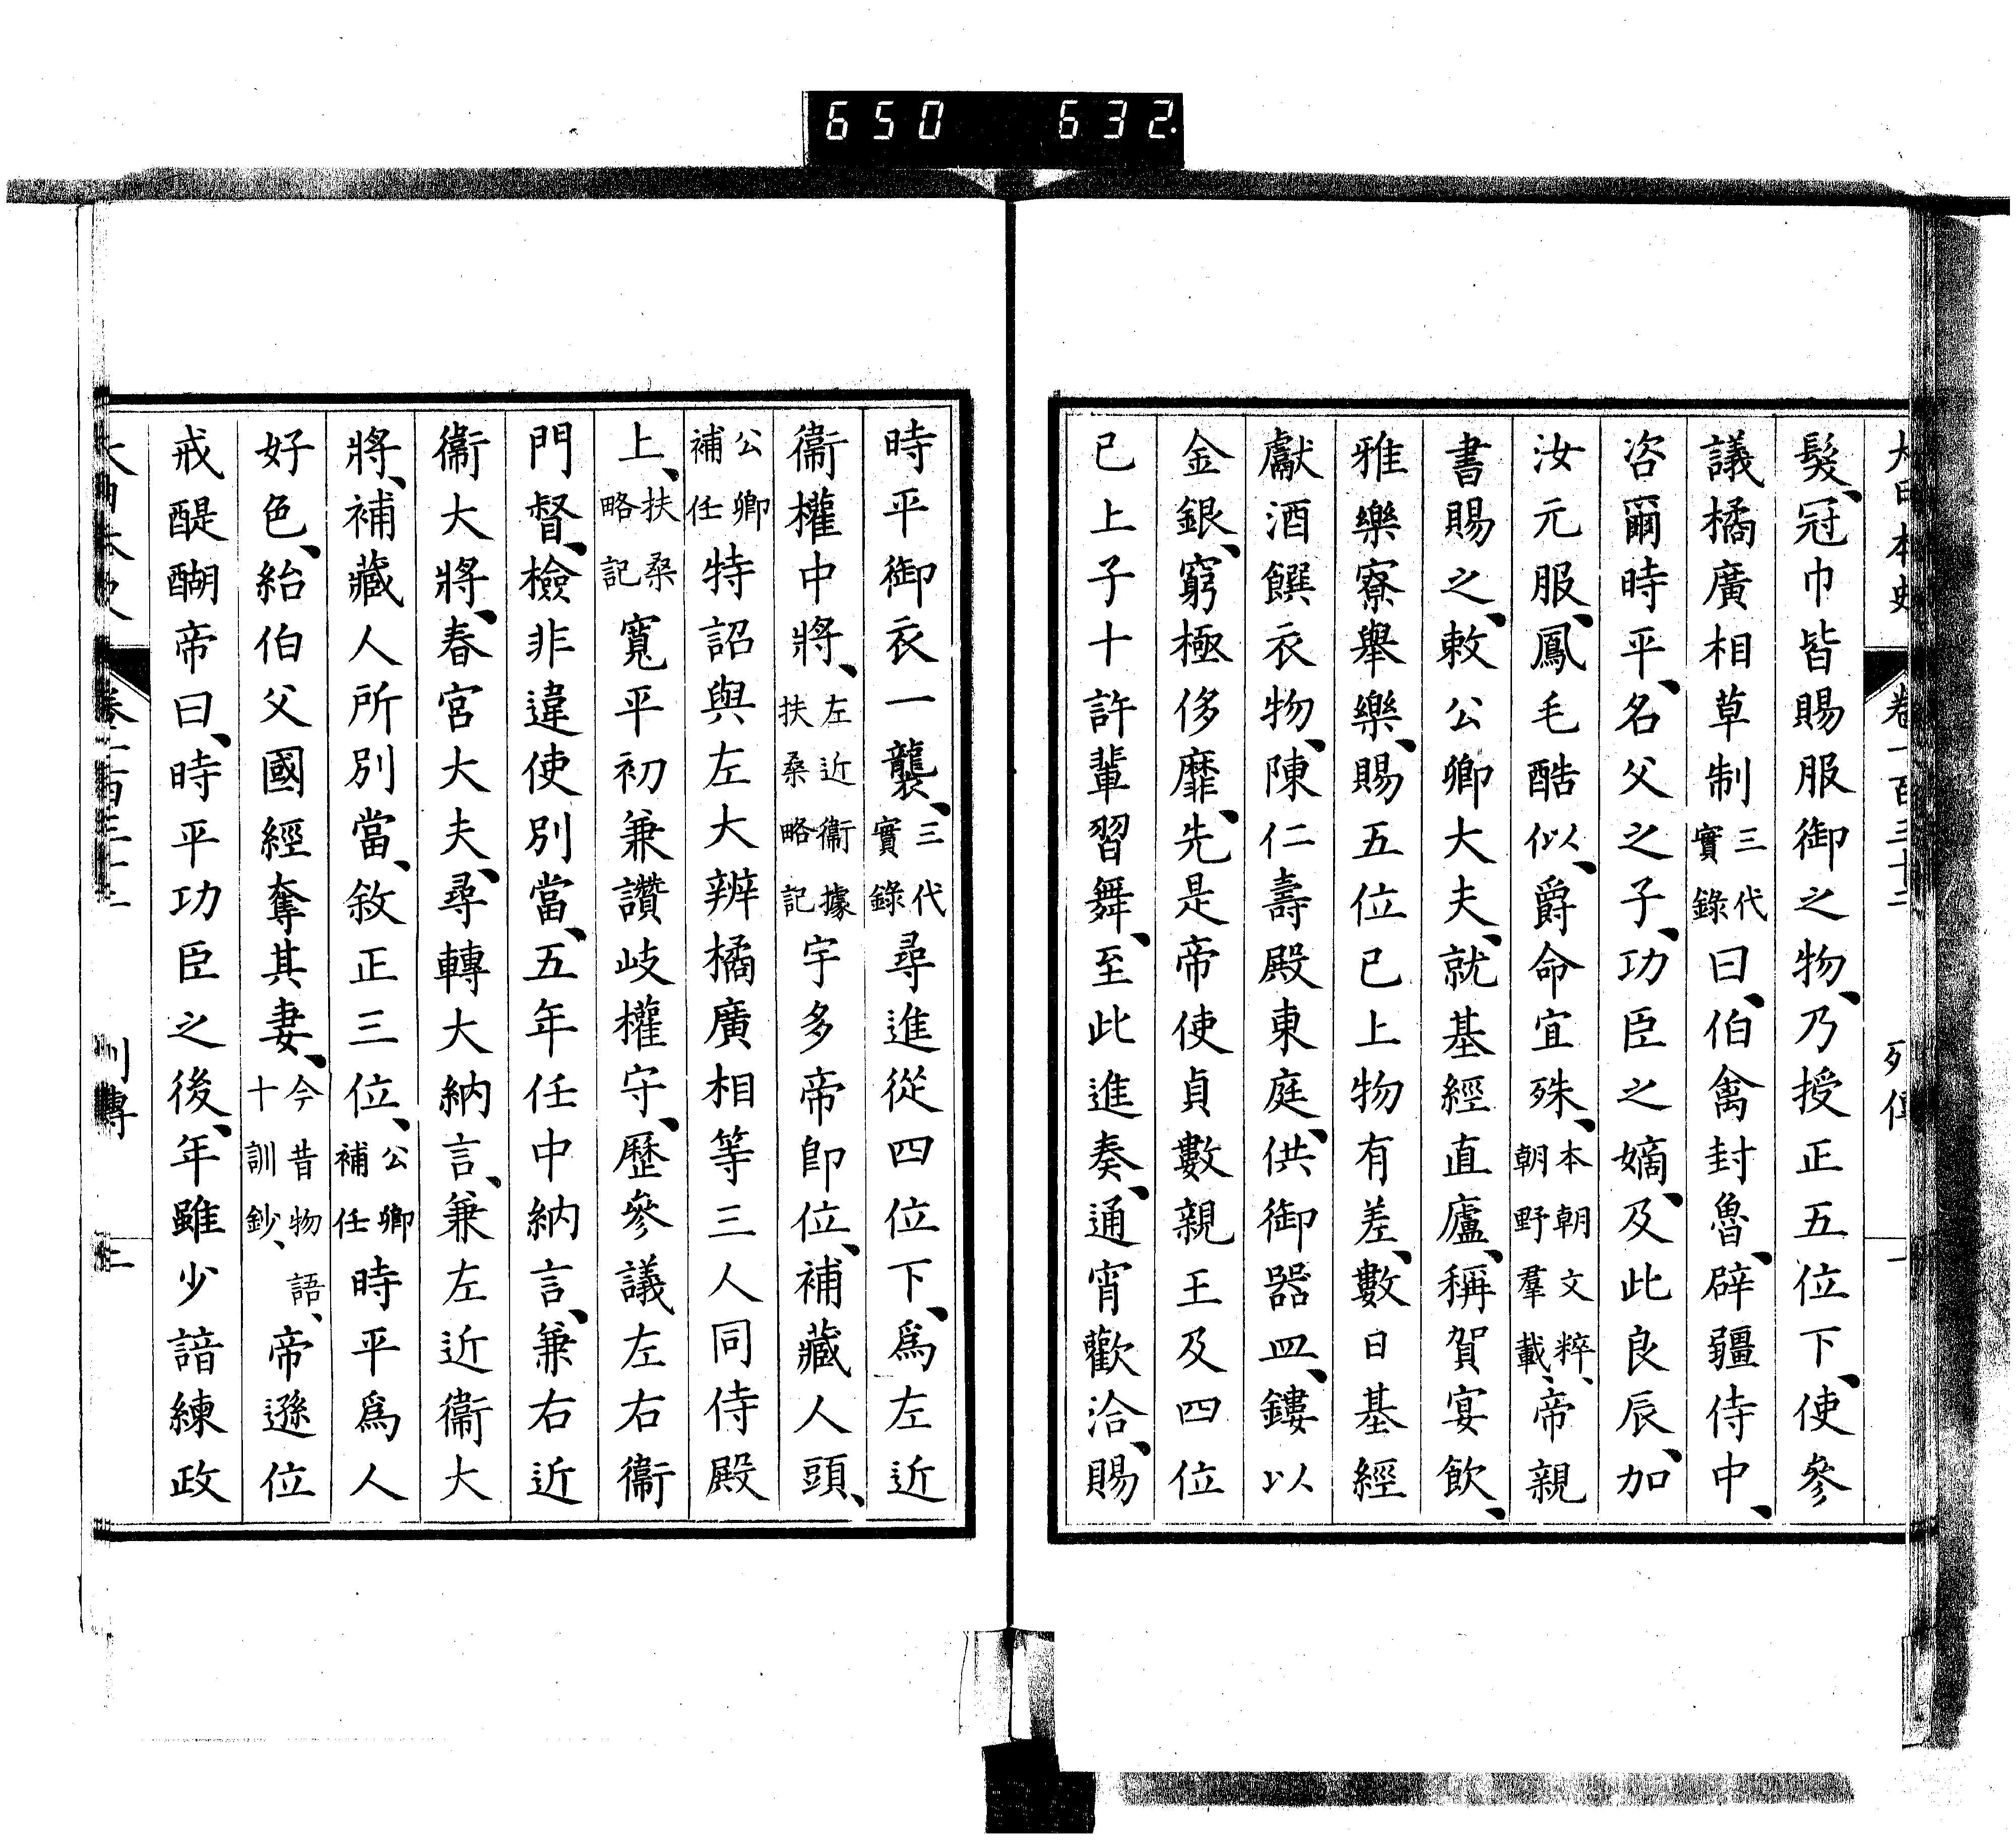 650 632
大日本史 卷一百三十二 列傳 一
髮、冠巾皆賜服御之物、乃授正五位下、使參
議橘廣相草制三代實錄曰、伯禽封魯、辟疆侍中、
咨爾時平、名父之子、功臣之嫡、及此良辰、加
汝元服、鳳毛酷似、爵命宜殊、本朝文粹、朝野羣載、帝親
書賜之、敕公卿大夫、就基經直廬、稱賀宴飮、
雅樂寮舉樂、賜五位已上物有差、數日基經
獻酒饌衣物、陳仁壽殿東庭、供御器皿、鏤以
金銀、窮極侈靡、先是帝使貞數親王及四位
已上子十許輩習舞、至此進奏、通宵歡洽、賜
時平御衣一襲、三代實錄尋進從四位下、爲左近
衞權中將、左近衞據扶桑略記宇多帝卽位、補藏人頭、
公卿補任特詔與左大辨橘廣相等三人同侍殿
上、扶桑略記寬平初兼讚岐權守、歷參議左右衞
門督、檢非違使別當、五年任中納言、兼右近
衞大將、春宮大夫、尋轉大納言、兼左近衞大
將、補藏人所別當、敘正三位、公卿補任時平爲人
好色、紿伯父國經奪其妻、今昔物語、十訓鈔、帝遜位
戒醍醐帝曰、時平功臣之後、年雖少諳練政
大日本史 卷一百三十二 列傳 二